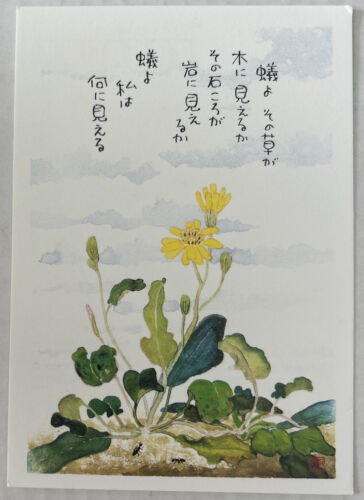 蟻よ その草が
木に見えるか
その石ころが
岩に見えるか
蟻よ
私は
何に見える